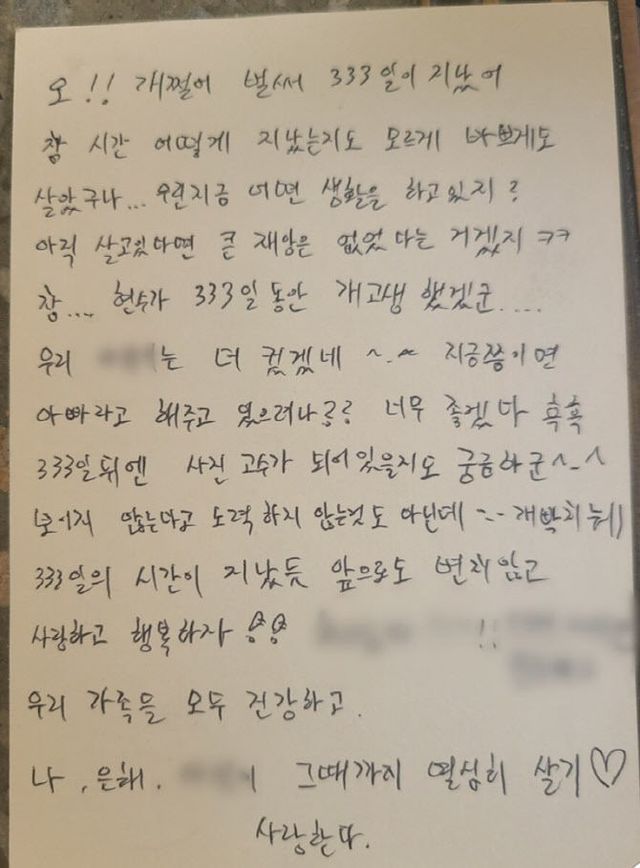 오!! 개쩔어 벌써 333일이 지났어
참 시간 어떻게 지났는지도 모르게 바쁘게도
살았구나... 우린지금 어떤 생활을 하고있지?
아직 살고있다면 큰 재앙은 없었다는 거겠지 ㅋㅋ
참... 현수가 333일동안 개고생 했겠군.....
우리 는 더 컸겠네 ^.~ 지금쯤이면
아빠라고 해주고 있으려나?? 너무 좋겠다 흑흑
333일뒤엔 사진 고수가 되어있을지도 궁금하군^-^
보이지 않는다고 노력하지 않는것도 아닌데 --
333일의 시간이 지났듯 앞으로도 변치않고
사랑하고 행복하자 !!
우리 가족들 모두 건강하고.
나, 은해. 그때까지 열심히 살기♡
사랑한다.